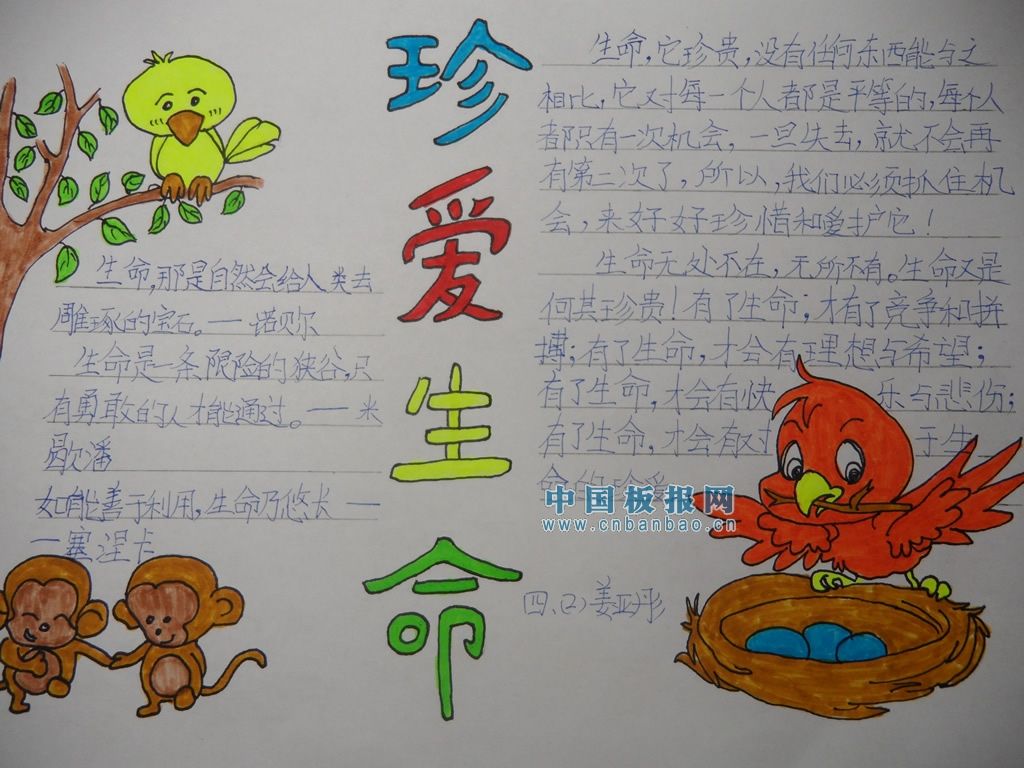 珍爱生命
生命,那是自然会给人类去
雕琢的宝石。——诺贝尔
生命是一条限险的狭谷,只
有勇敢的人才能通过。——米
歇潘
如能善于利用,生命乃悠长—
—塞涅卡
生命,它珍贵,没有任何东西能与之
相比,它对每一个人都是平等的,每个人
都只有一次机会,一旦失去,就不会再
有第二次了,所以,我们必须抓住机
会,来好好珍惜和爱护它!
生命无处不在,无所不有。生命又是
何其珍贵!有了生命;才有了竞争和拼
搏;有了生命,才会有理想与希望;
有了生命,才会有快乐与悲伤;
有了生命,才会有对于生
命的
中国板报网
www.cnbanbao.cn
四、(2)姜亚彤